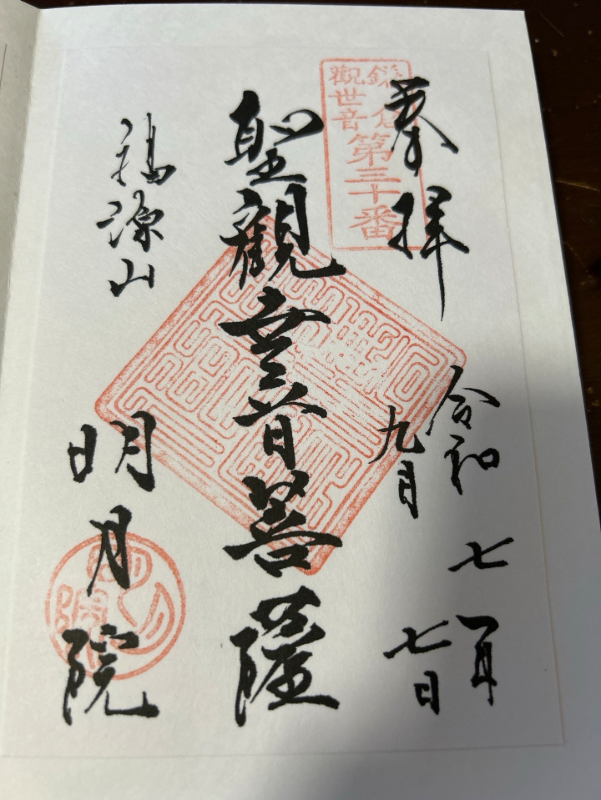 奉拝
鎌倉
觀世音
第三十番
令和七年
九月七日
聖観世音菩薩
福源山
明月院